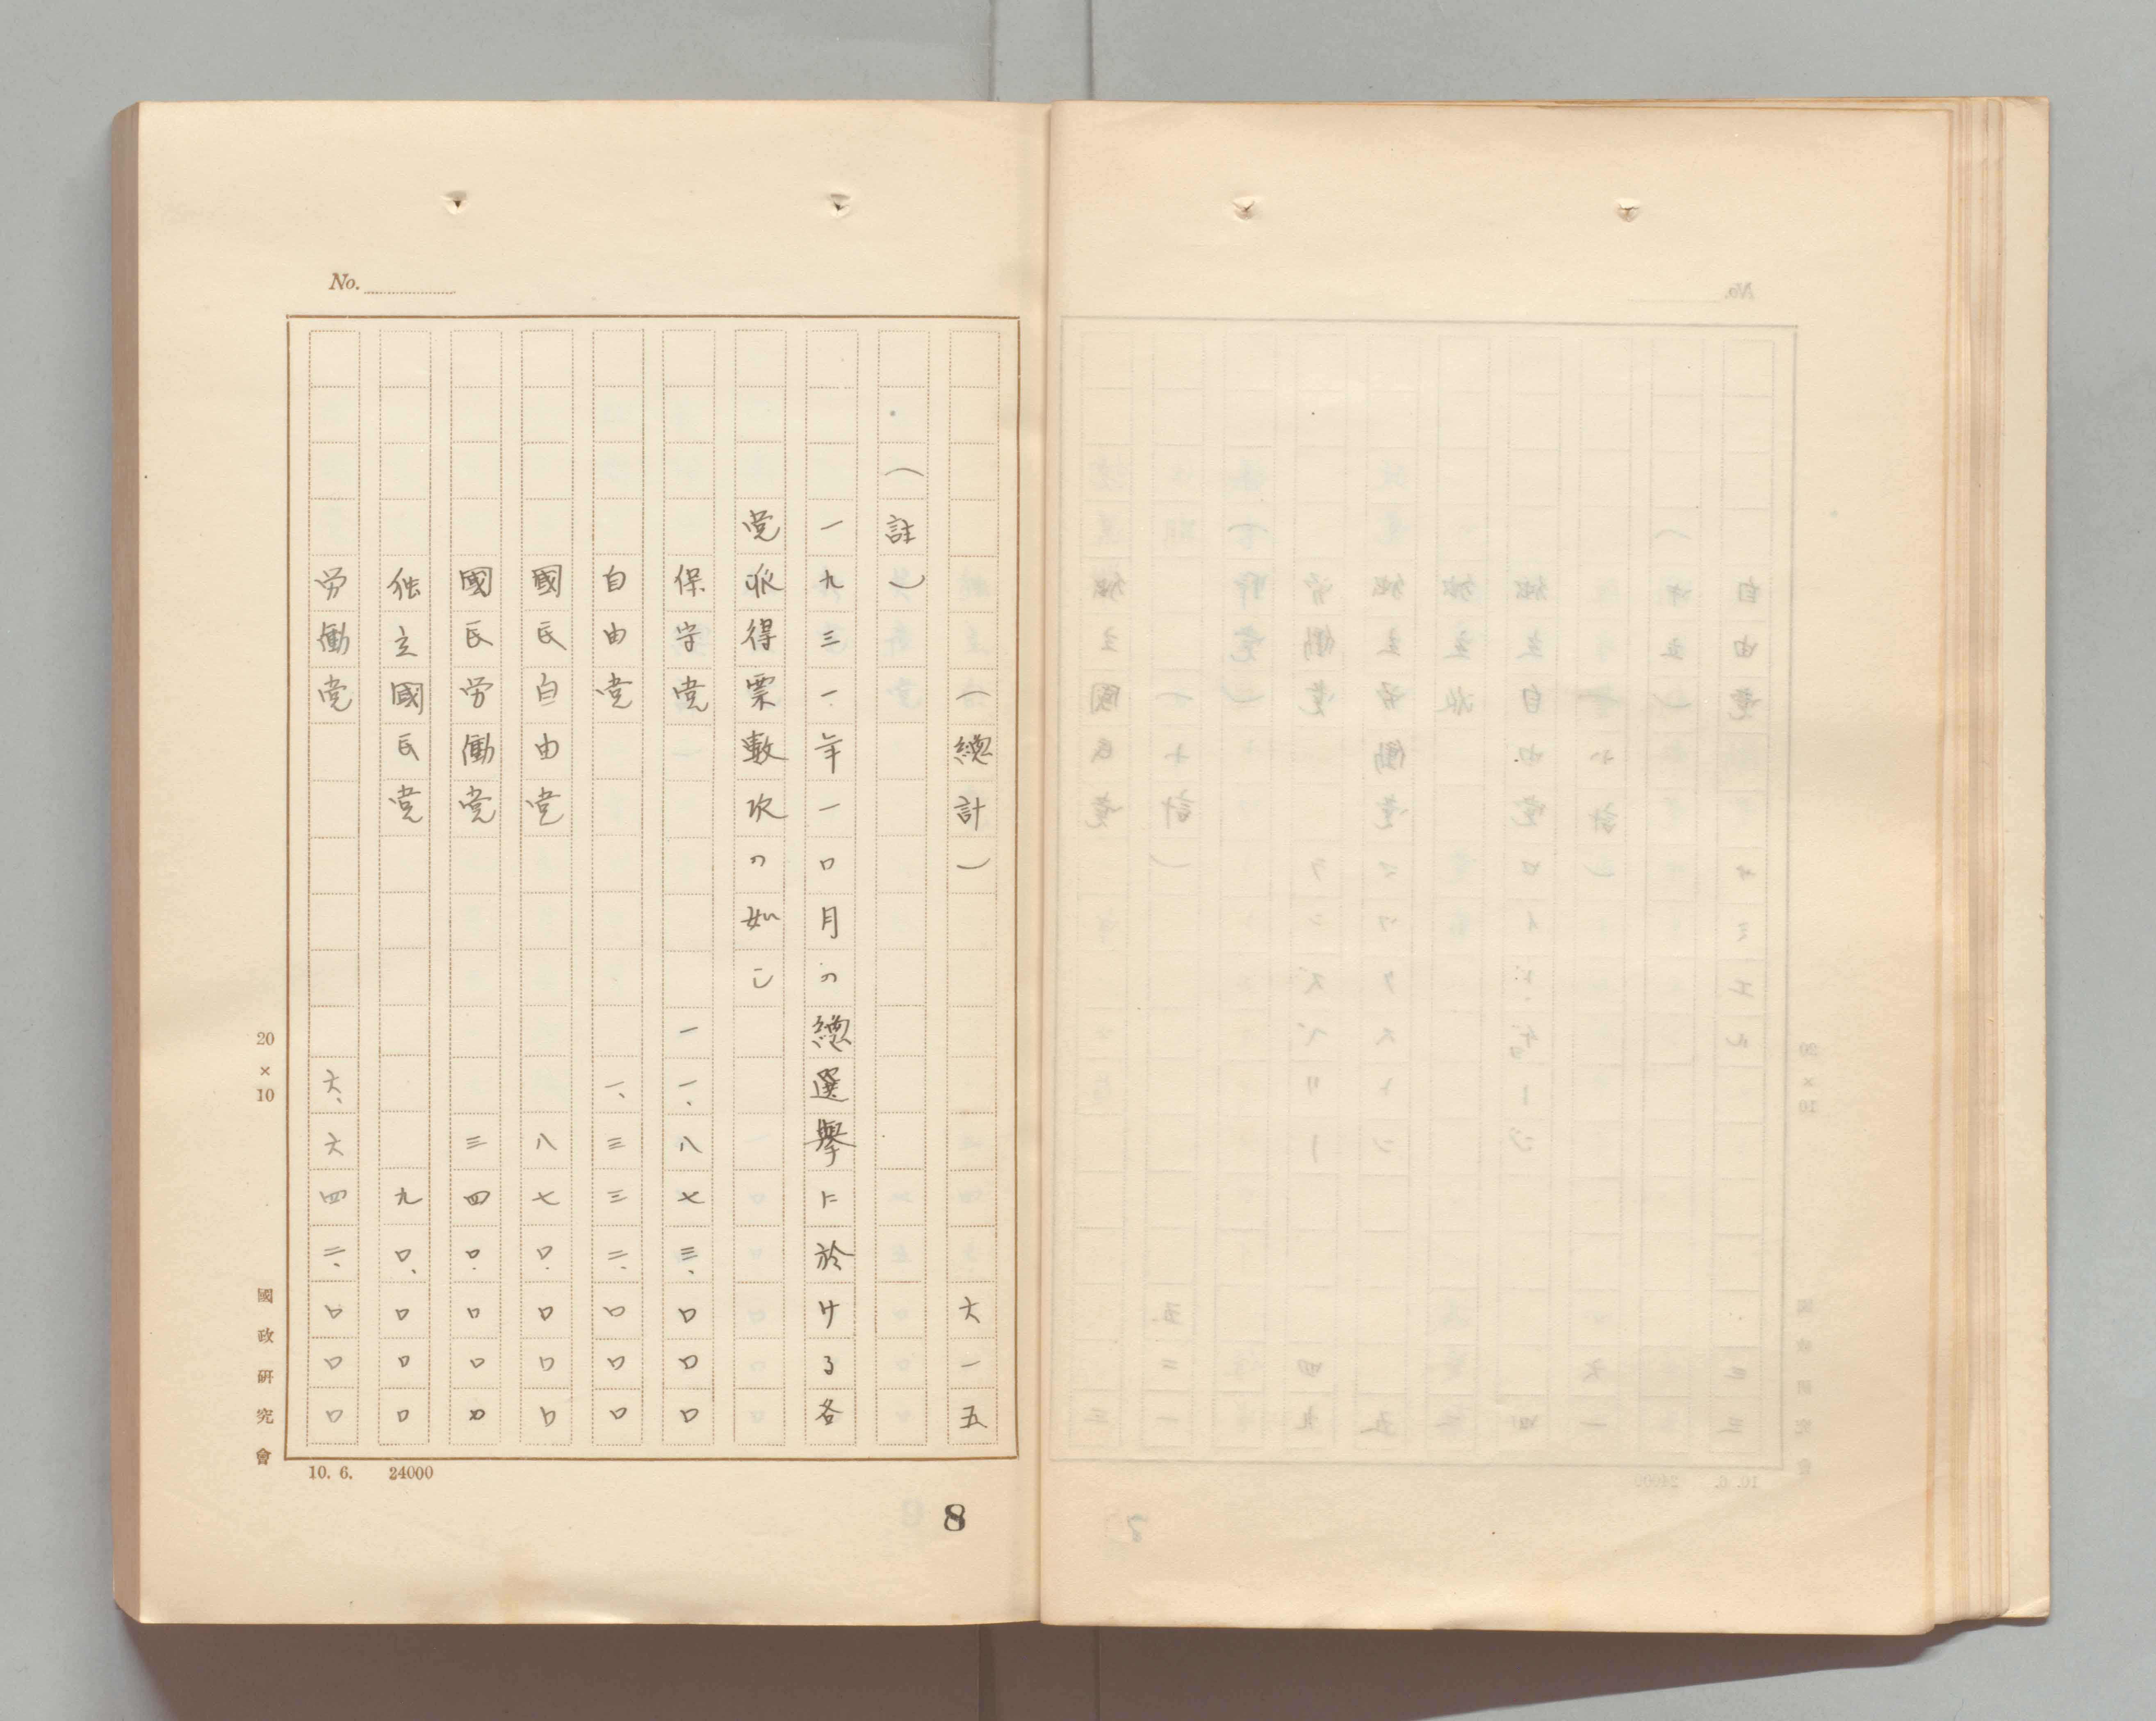 No.
（總計）　六一五
（註）
一九三一年一〇月の總選擧に於ける各
党派得票數次の如し
保守党　一一、八七三、〇〇〇
自由党　一、三三二、〇〇〇
國民自由党　八七〇、〇〇〇
國民労働党　三四〇、〇〇〇
独立國民党　九〇、〇〇〇
労働党　六、六四二、〇〇〇
20×10
國政研究會
10. 6.　24000
8